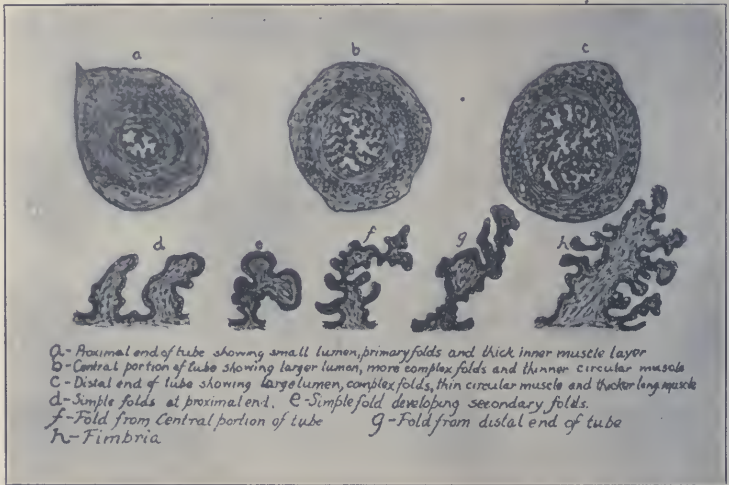 a
b
c
d
e
f
g
h
a-Proximal end of tube showing small lumen, primary folds and thick inner muscle layer
b-Central portion of tube showing larger lumen, more complex folds and thinner circular muscle
c-Distal end of tube showing large lumen, complex folds, thin circular muscle and thicker long. muscle
d-Simple folds at proximal end. e-Simple fold developing secondary folds.
f-Fold from Central portion of tube g-Fold from distal end of tube
h-Fimbria